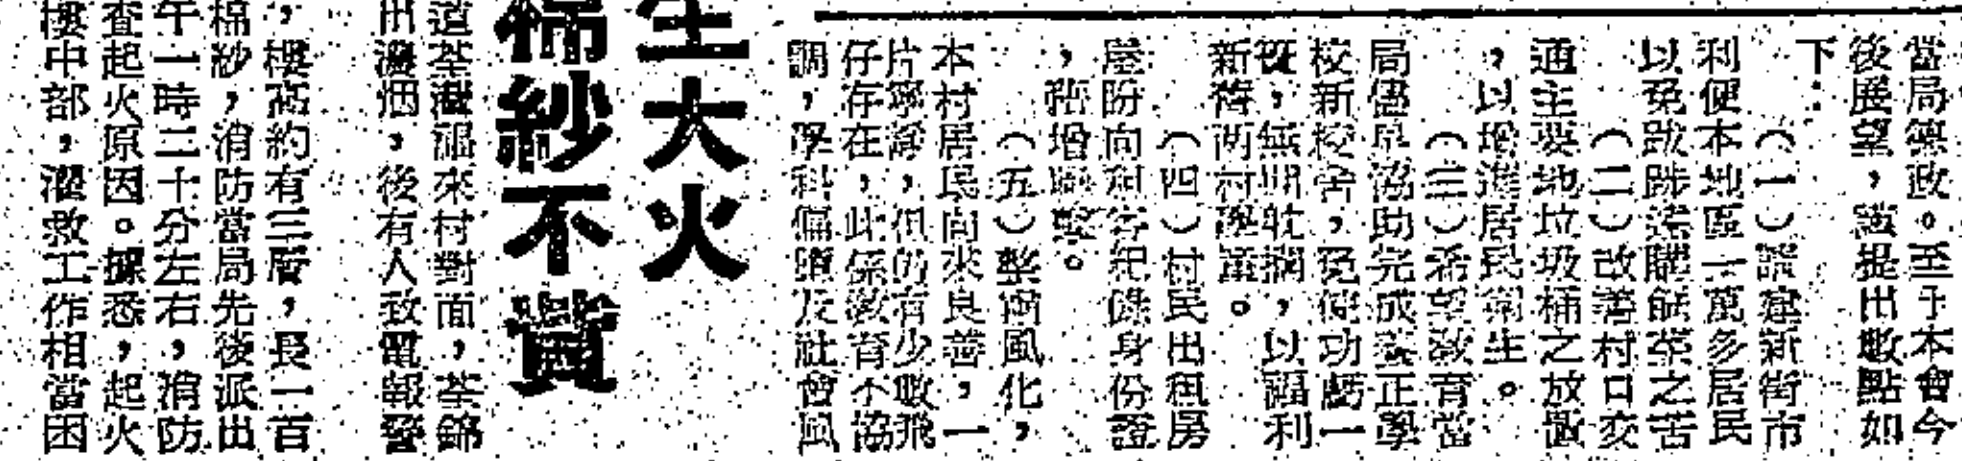 當局德政。至于本會今
後展望,謹提出數點如
下:
(一)請建新街市
利便本地區一萬多居民
以免跋踄遠購餸菜之苦
(二)改善村口交
通主要地垃圾桶之放置
,以增進居民衛生。
(三)希望教育當
局儘早協助完成養正學
校新校舍,免使功虧一
簣,無期耽擱,以福利
新舊兩村學童。
(四)村民出租房
屋盼向租客紀錄身份證
,
(五)整肅風化,
本村居民向來良善,一
片寧靜,但仍有少數飛
仔存在,此係教育不協
調,學科偏廢及社會風
生大火
棉紗不貲
道荃灣福來村對面,荃錦
出濃烟,後有人致電報警
,樓高約有三層,長一百
棉紗,消防當局先後派出
午一時二十分左右,消防
查起火原因。據悉,起火
樓中部,灌救工作相當困